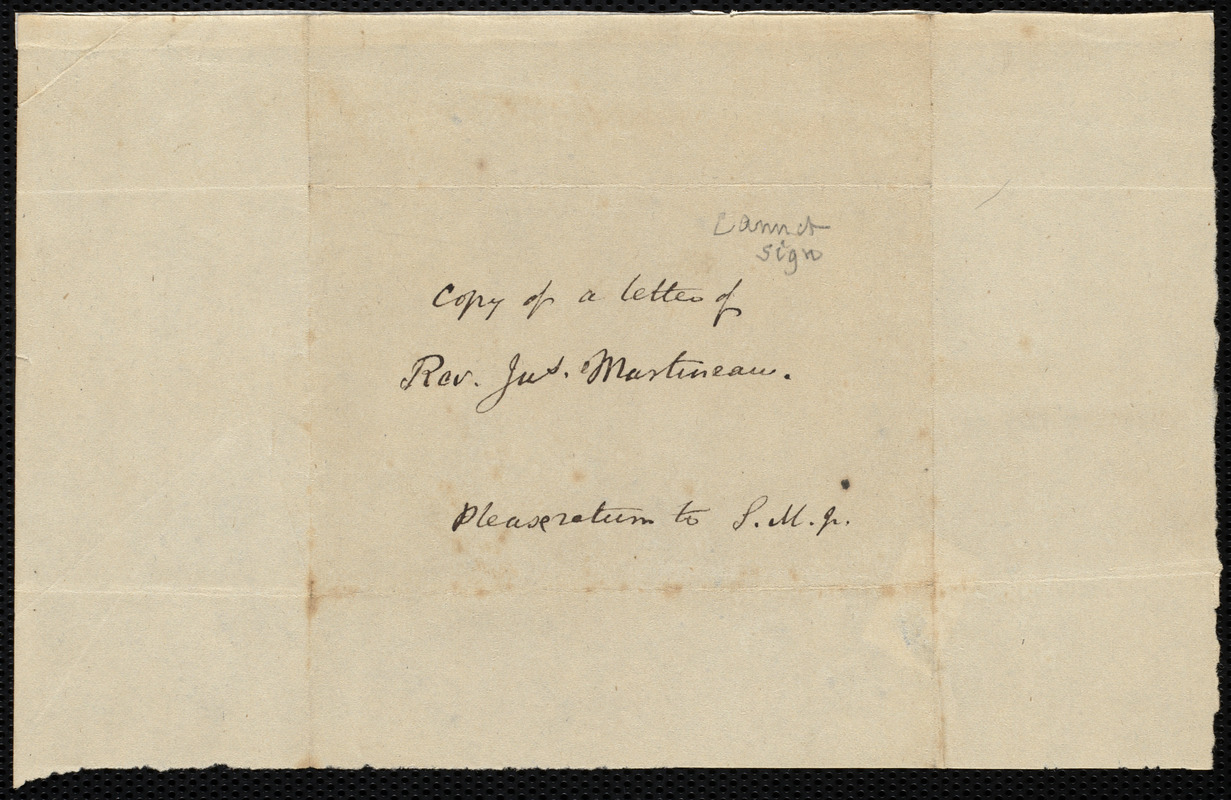 Cannot
sign
Copy of a letter of
Rev. Jas. Martineau.
Please return to S. M. jr.